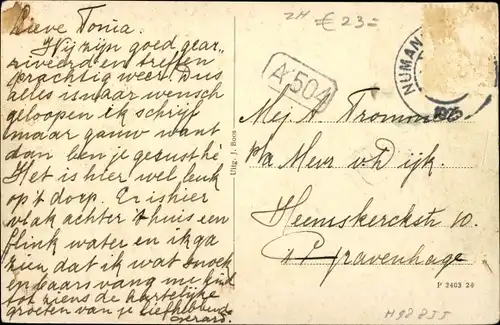 Lieve Tonia.
Wij zijn goed gear„
riveerd en treffen
prachtig weer. Dus
alles is naar wensch
geloopen ik schrijf
maar gauw want
dan ben je gerust hé
Het is hier wel leuk
op 't dorp. Er is hier
vlak achter 't huis een
flink water en ik ga
zien dat ik wat snoek
en baars vang
tot ziens de hartelijke
groeten van je liefhebbende
Gerard.
ZH € 23=
A 504
NUMAN
Uitg. J. Boos
Mej. A. Trommel
p/a Mevr v. Dijk.
Heemskerckstr 10.
's Gravenhage
P 2403 24
M98255